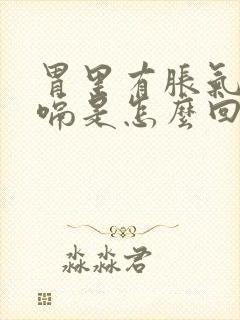 胃里有脹氣
嗝是怎麼回
淼淼君